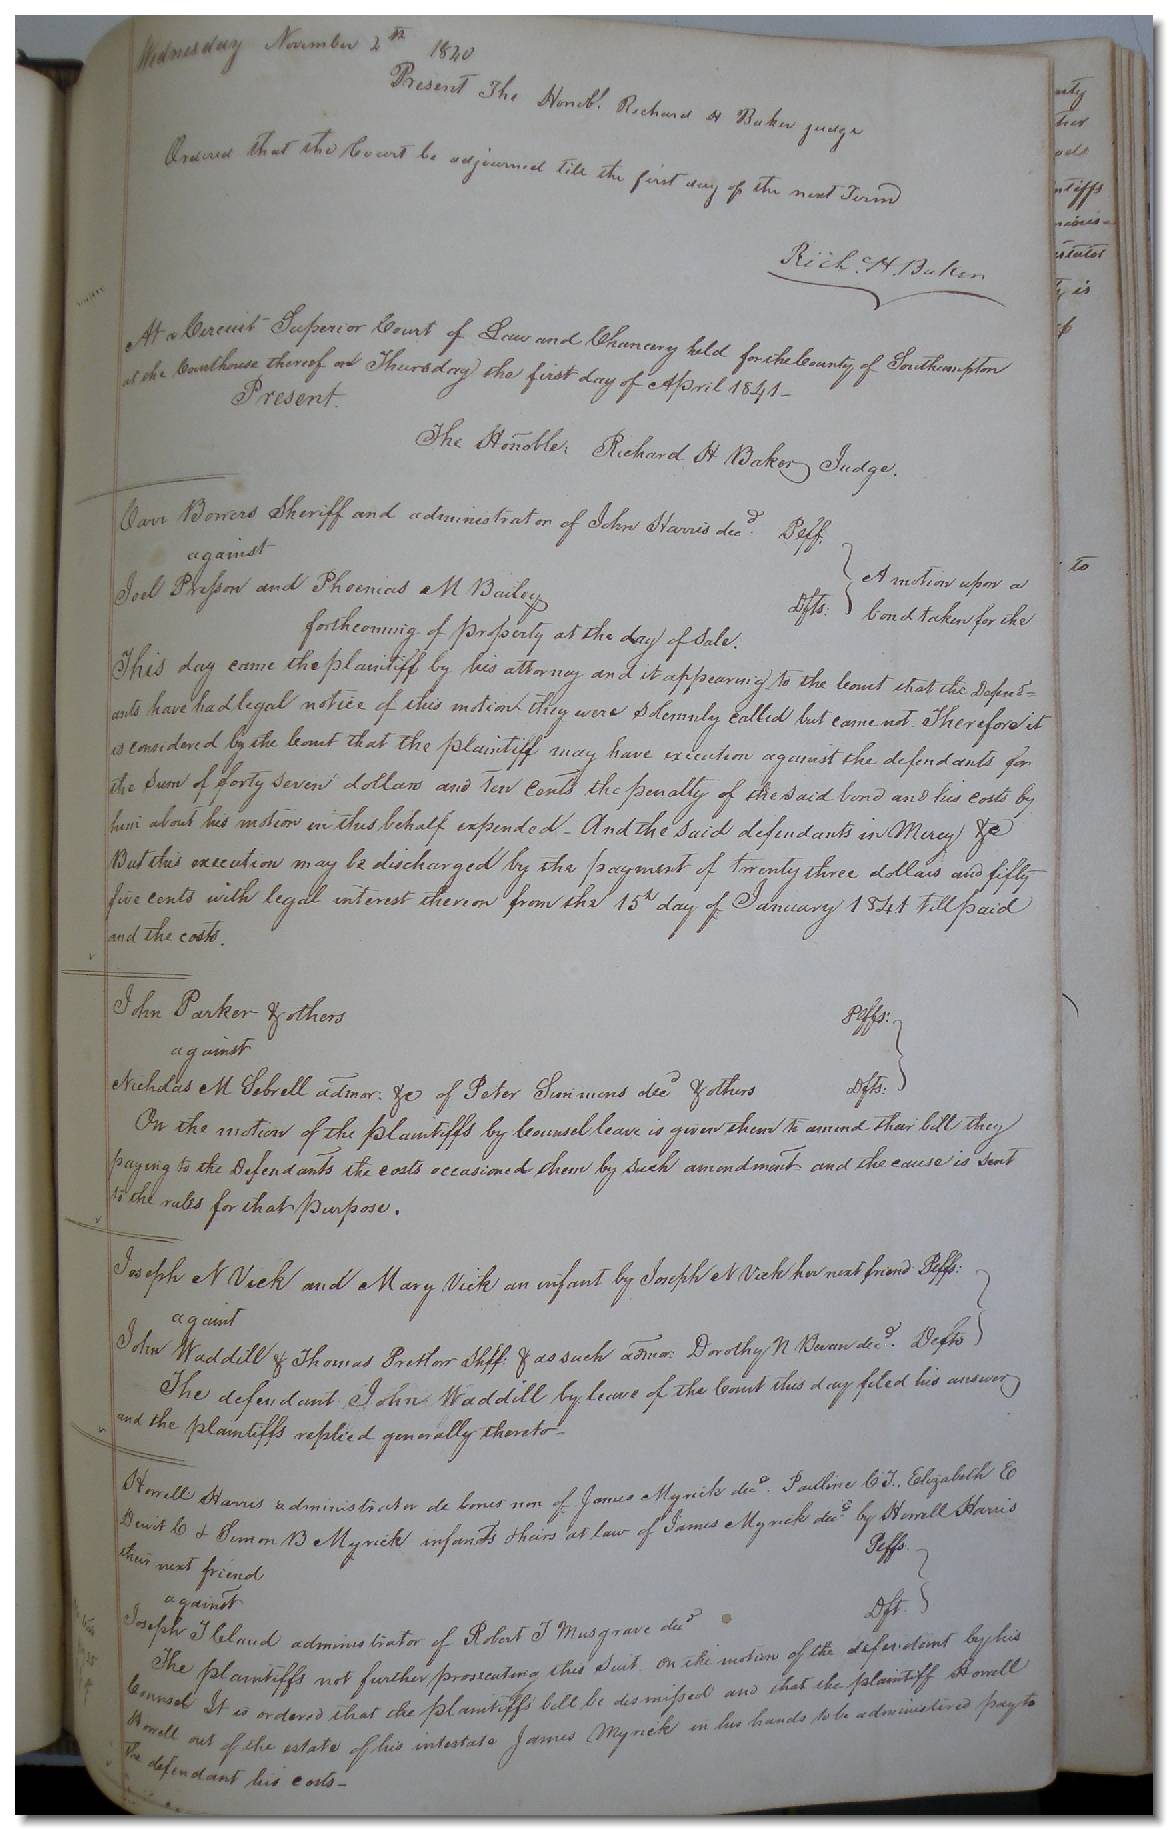 Wednesday November 2th 1840
Present The Honobl. Richard H Baker judge
Ordered that the Court be adjourned till the first day of the next Term
Rich. H. Baker
At a Circuit Superior Court of Law and Chancery held for the County of Southampton
at the Courthouse thereof on Thursday the first day of April 1841 -
Present.
The Honoble: Richard H Baker Judge.
Carr Bowers Sheriff and administrator of John Harris decd. Plff.
against
Joel Presson and Phoenias M Bailey Dfts: A motion upon a
bond taken for the
forthcoming of property at the day of sale.
This day came the plaintiff by his attorney and it appearing to the Court that the Defend=
ants have had legal notice of this motion they were solemnly called but came not. Therefore it
is considered by the Court that the plaintiff may have execution against the defendants for
the sum of forty seven dollars and ten cents the penalty of the said bond and his costs by
him about his motion in this behalf expended - And the said defendants in Mercy &c
But this execution may be discharged by the payment of twenty three dollars and fifty
five cents with legal interest thereon from the 15th day of January 1841 till paid
and the costs.
John Parker & others Plffs:
against
Nicholas M Sebrell admor: &c of Peter Simmons decd & others Dfts:
On the motion of the plaintiffs by Counsel leave is given them to amend their bill they
paying to the Defendants the costs occasioned them by such amendment and the cause is sent
to the rules for that purpose.
Joseph N Vick and Mary Vick an infant by Joseph N Vick her next friend Plffs:
againt
John Waddill & Thomas Pretlow Shff: & as such admor: Dorothy N Bevan decd. Defts
The defendant John Waddill by leave of the Court this day filed his answer
and the plaintiffs replied generally thereto -
Howell Harris administrator de bones non of James Myrick decd. Pauline C T., Elizabeth E
Dewit C & Simon B Myrick infants & hairs at law of James Myrick decd by Howell Harris
their next friend Plffs.
against
Joseph T Cland administrator of Robert T Musgrave decd Dft.
The plaintiffs not further prosecuting this suit. On the motion of the defendant by his
Counsel It is ordered that the plaintiffs bill be dismissed and that the plaintiff Howell
Howell out of the estate of his intestate James Myrick in his hands to be administered pay to
the defendant his costs -